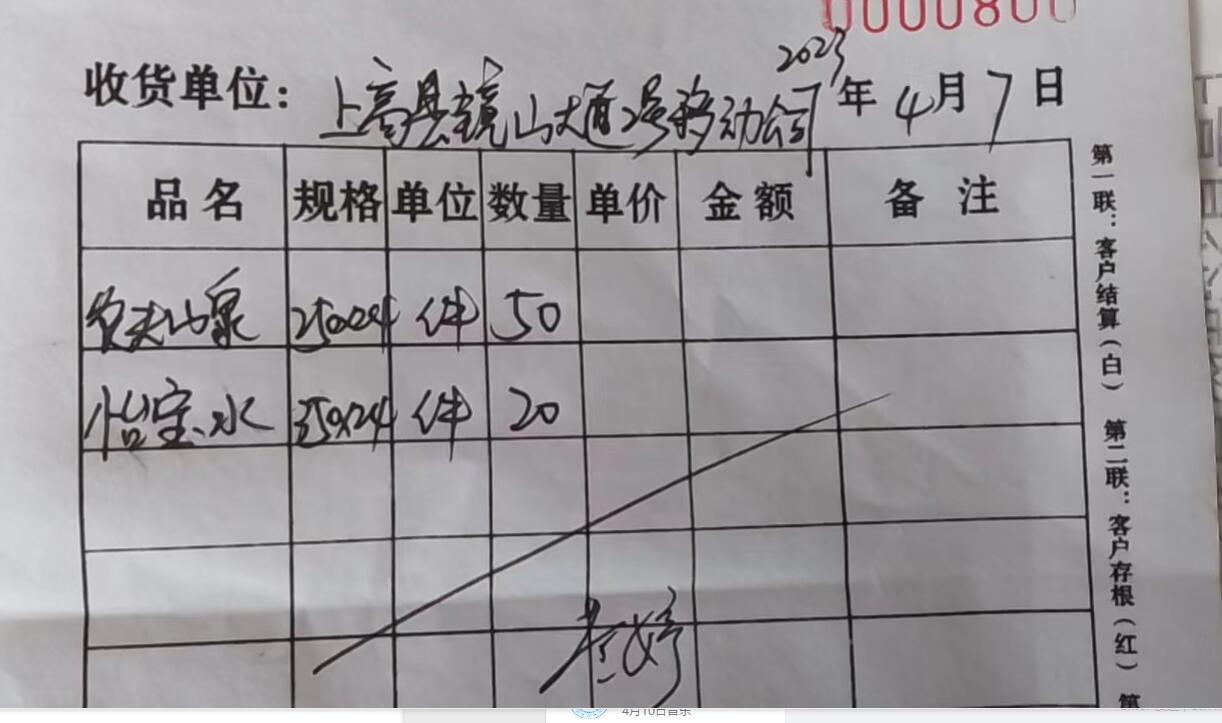 0000800
收货单位: 上高县镜山大道2号移动公司 2023年4月7日
品名 规格 单位 数量 单价 金额 备注
农夫山泉 250x24 件 50
怡宝水 350x24 件 20
婷
第一联:客户结算(白) 第二联:客户存根(红) 第
4月10日音乐